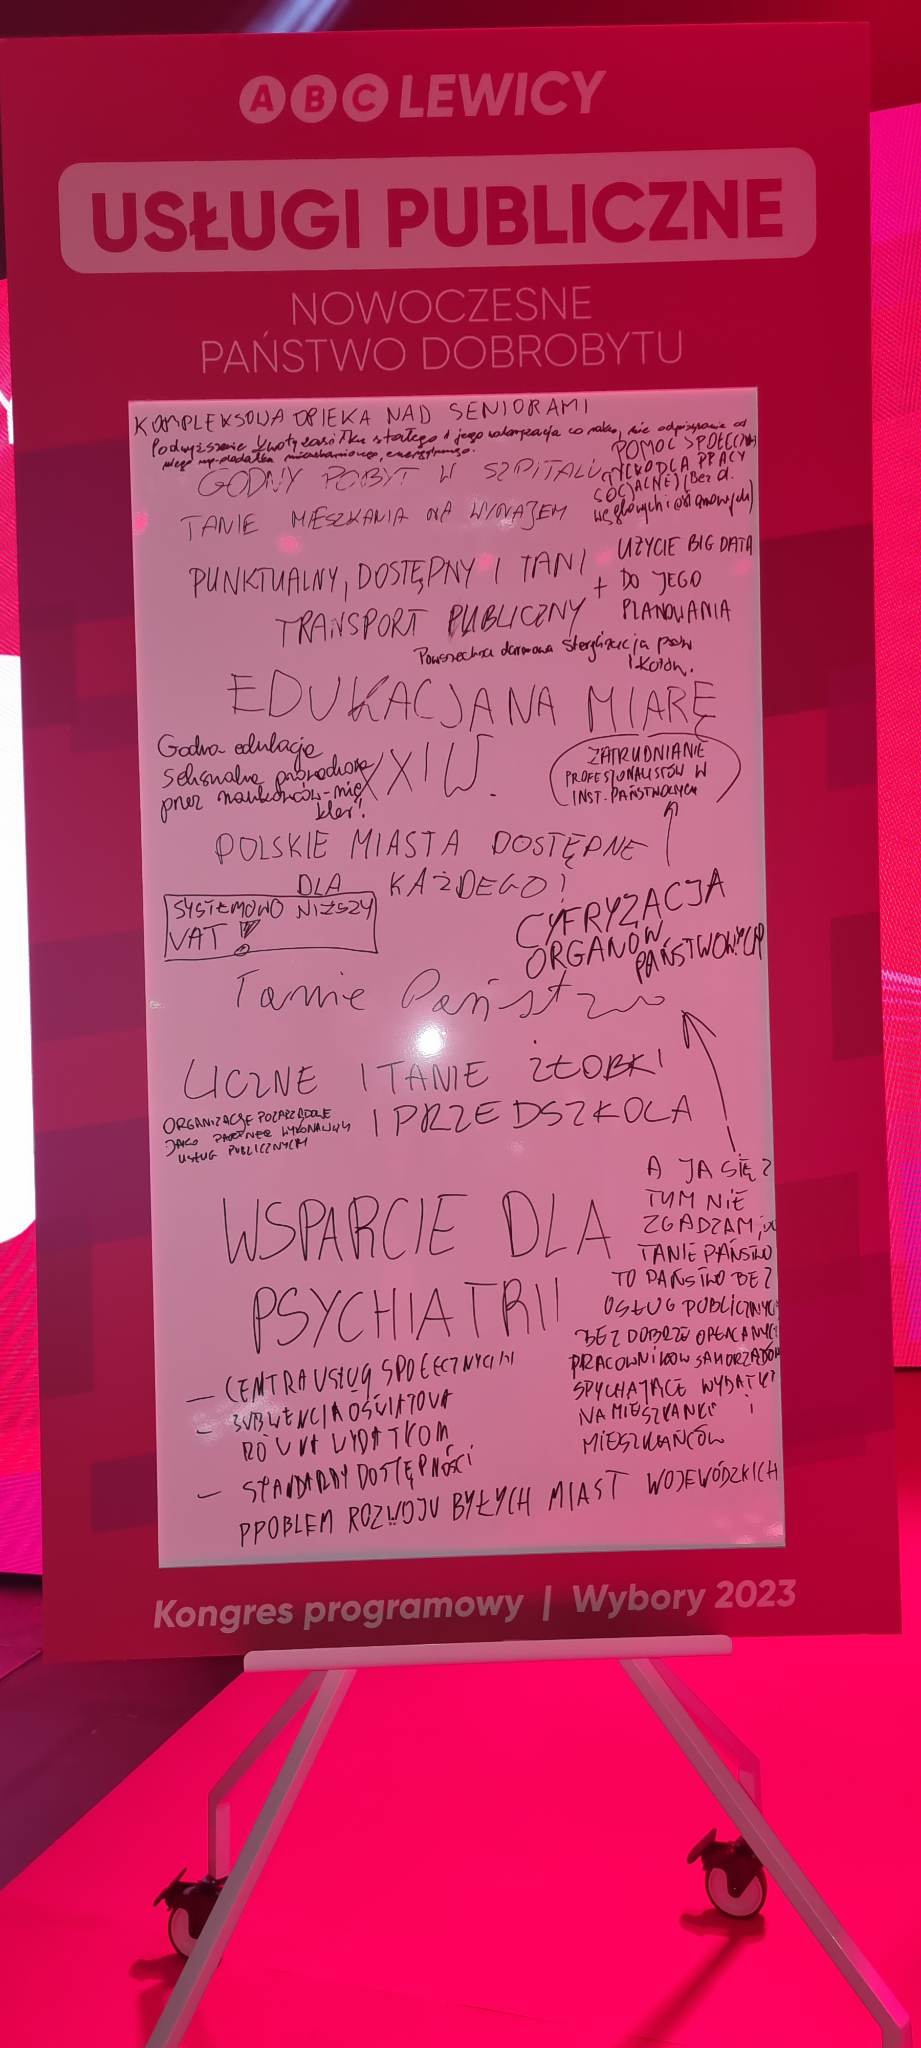 ABC LEWICY
USŁUGI PUBLICZNE
NOWOCZESNE
PAŃSTWO DOBROBYTU
KOMPLEKSOWA OPIEKA NAD SENIORAMI
Podwyższenie kwoty zasiłku stałego i jego waloryzacja co roku, nie odpisywanie od
niego np. dodatku mieszkaniowego, energetycznego.
GODNY POBYT W SZPITALU
POMOC SPOŁECZNA
TYLKO DLA PRACY
SOCJALNEJ (Bez d.
węglowych i osłonowych)
TANIE MIESZKANIA NA WYNAJEM
PUNKTUALNY, DOSTĘPNY I TANI
TRANSPORT PUBLICZNY
+ UŻYCIE BIG DATA
DO JEGO
PLANOWANIA
Powszechna darmowa sterylizacja psów
i kotów.
EDUKACJA NA MIARĘ
XXI W.
Godna edukacja
seksualna prowadzona
przez naukowców - nie
kler!
ZATRUDNIANIE
PROFESJONALISTÓW W
INST. PAŃSTWOWYCH
POLSKIE MIASTA DOSTĘPNE
DLA KAŻDEGO!
SYSTEMOWO NIŻSZY
VAT !
CYFRYZACJA
ORGANÓW
PAŃSTWOWYCH
Tanie Państwo
LICZNE I TANIE ŻŁOBKI
I PRZEDSZKOLA
ORGANIZACJE POZARZĄDOWE
JAKO PARTNER WYKONAWCY
USŁUG PUBLICZNYCH
A JA SIĘ Z
TYM NIE
ZGADZAM,
TANIE PAŃSTWO
TO PAŃSTWO BEZ
USŁUG PUBLICZNYCH
BEZ DOBRZE OPŁACANYCH
PRACOWNIKÓW SAMORZĄDÓW
SPYCHAJĄCE WYDATKI
NA MIESZKANKI I
MIESZKAŃCÓW
WSPARCIE DLA
PSYCHIATRII
– CENTRA USŁUG SPOŁECZNYCH
– SUBWENCJA OŚWIATOWA
RÓWNA WYDATKOM
– STANDARDY DOSTĘPNOŚCI
PROBLEM ROZWOJU BYŁYCH MIAST WOJEWÓDZKICH
Kongres programowy | Wybory 2023